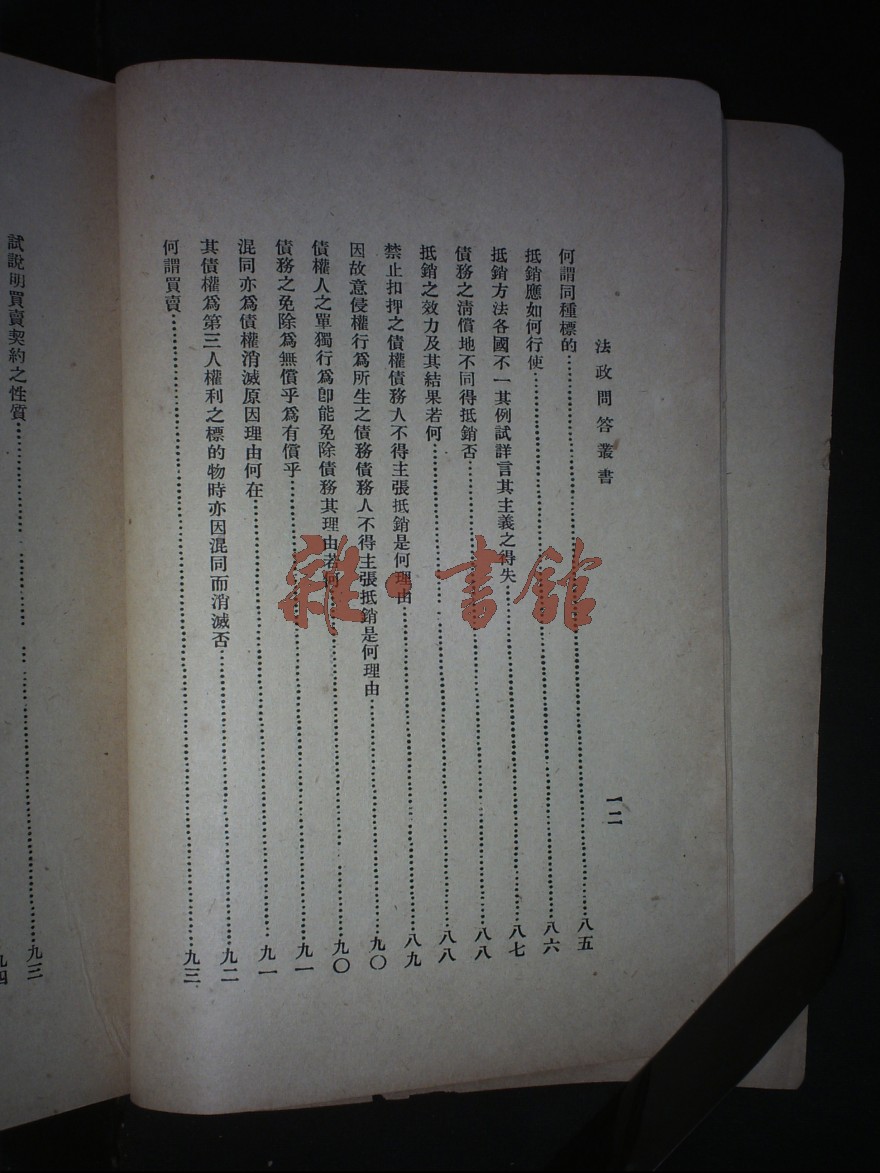 法政問答叢書
一二
何謂同種標的……八五
抵銷應如何行使……八六
抵銷方法各國不一其例試詳言其主義之得失……八七
債務之淸償地不同得抵銷否……八八
抵銷之效力及其結果若何……八八
禁止扣押之債權債務人不得主張抵銷是何理由……八九
因故意侵權行爲所生之債務債務人不得主張抵銷是何理由……九〇
債權人之單獨行爲卽能免除債務其理由若何……九〇
債務之免除爲無償乎爲有償乎……九一
混同亦爲債權消滅原因理由何在……九一
其債權爲第三人權利之標的物時亦因混同而消滅否……九二
何謂買賣……九三
試說明買賣契約之性質……九三
九四
雜·書館